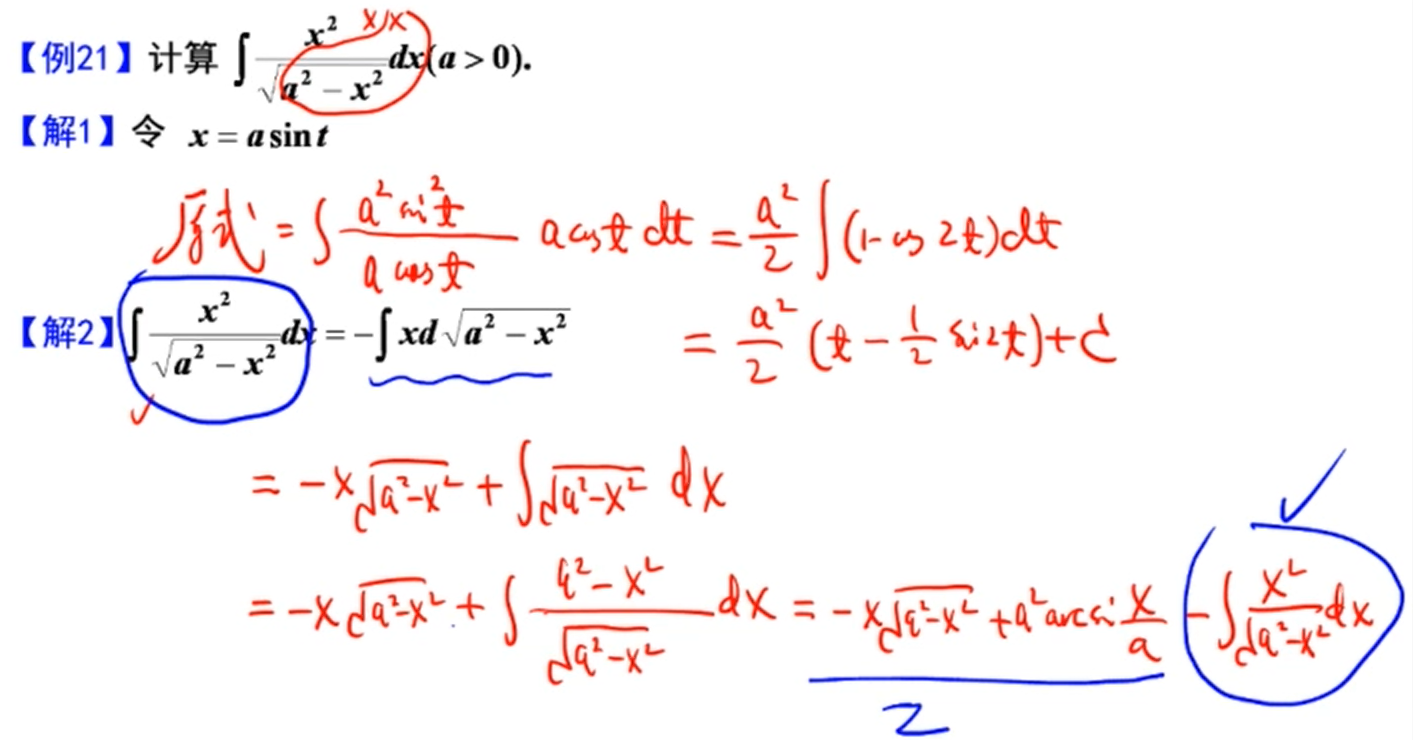 【例21】计算 ∫ x²/√(a² − x²) dx (a > 0). x/x
【解1】令 x = a sin t
原式 = ∫ (a² sin² t)/(a cos t) a cos t dt = a²/2 ∫ (1 - cos 2t) dt
= a²/2 (t − 1/2 sin 2t) + C
【解2】∫ x²/√(a² − x²) dx = −∫ x d √(a² − x²)
= −x √(a²−x²) + ∫ √(a²−x²) dx
= −x √(a²−x²) + ∫ (a²−x²)/√(a²−x²) dx = −x √(a²−x²) + a² arcsin x/a − ∫ x²/√(a²−x²) dx
2